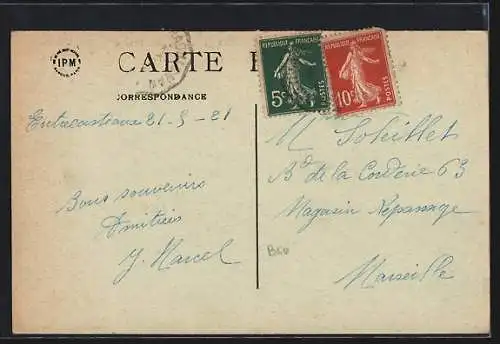 IPM
CARTE P
CORRESPONDANCE
REPUBLIQUE FRANCAISE
5c POSTES
REPUBLIQUE FRANCAISE
10c POSTES
Entrecasteaux 21-9-21
Bons souvenirs
Amitiés
J. Marcel
Mr Soleillet
Bd de la Corderie 63
Magasin Repassage
Marseille